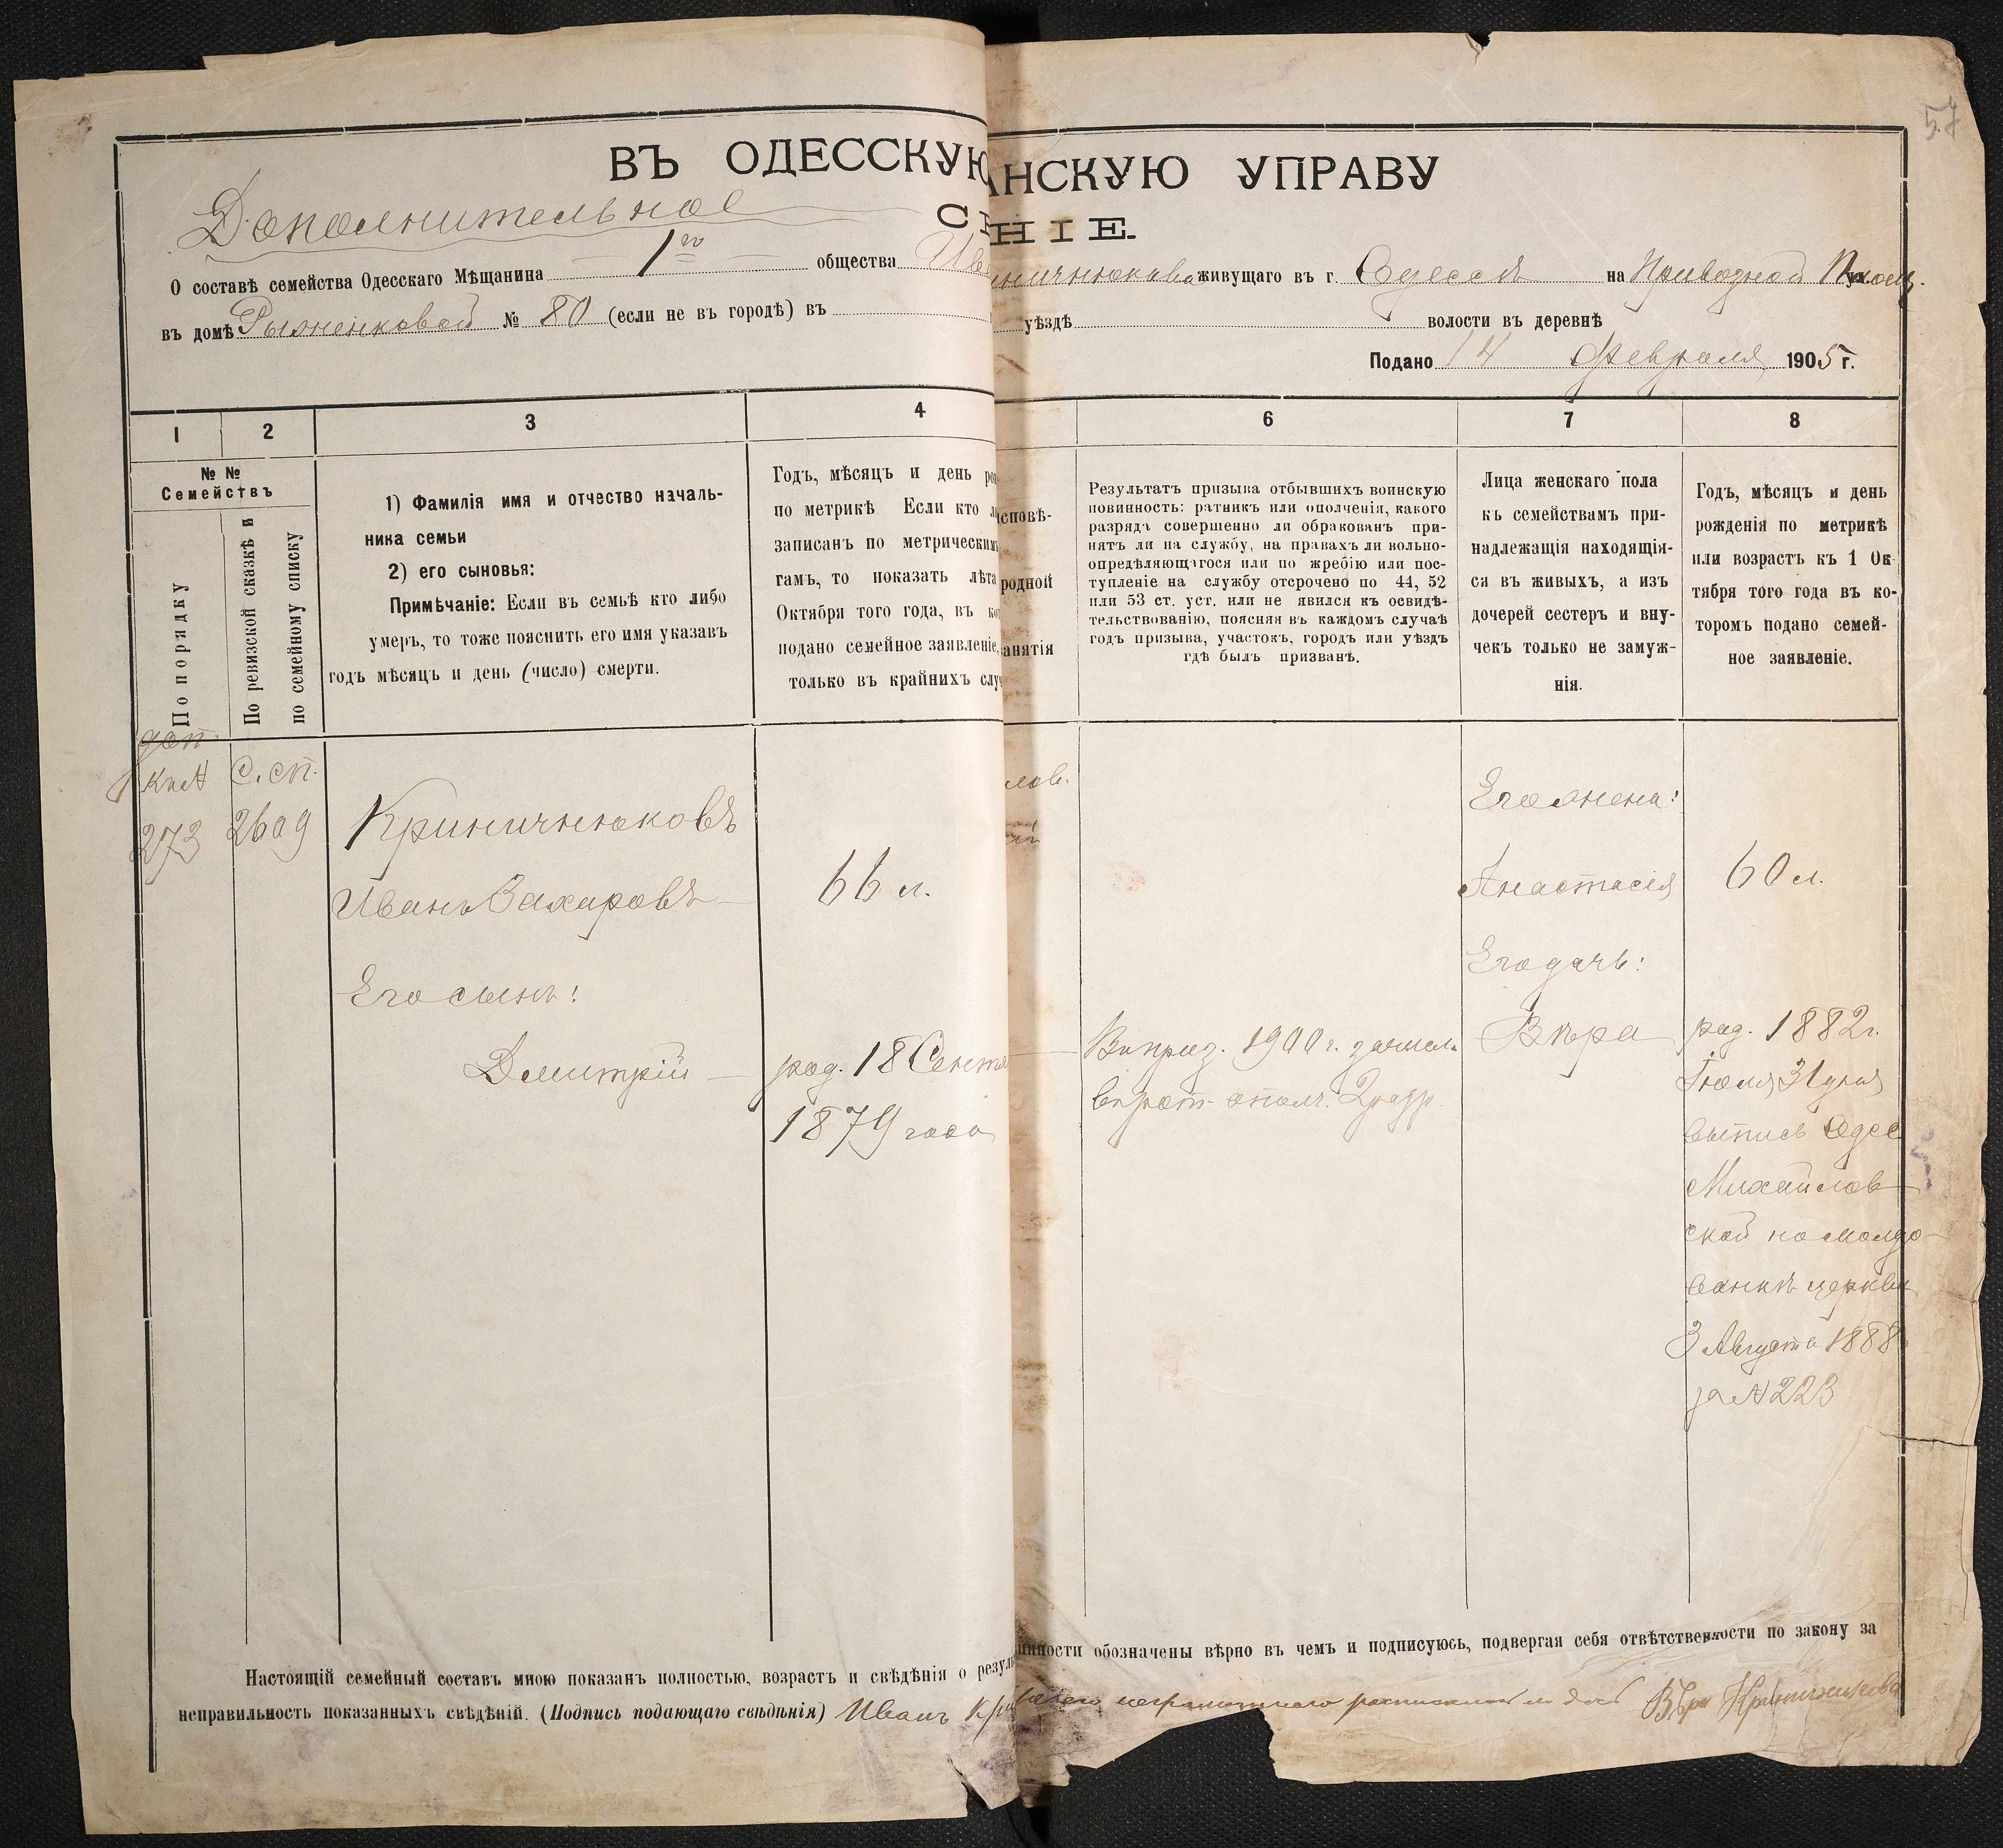 57
ВЪ ОДЕССКУЮ АНСКУЮ УПРАВУ
Дополнительное
НІЕ.
О составѣ семейства Одесскаго Мѣщанина 1го общества Ив иничнюкова живущаго въ г. Одессѣ на Привозной Площ.
въ домѣ № 80 (если не въ городѣ) въ уѣздѣ волости въ деревнѣ
Подано 14 Февраля 1905 г.
1 2 3 4 6 7 8
№ №
Семействъ
По порядку
По ревизской сказкѣ и
по семейному списку
1) Фамилія имя и отчество началь-
ника семьи
2) его сыновья:
Примѣчаніе: Если въ семьѣ кто либо
умеръ, то тоже пояснить его имя указавъ
годъ мѣсяцъ и день (число) смерти.
Годъ, мѣсяцъ и день ро
по метрикѣ Если кто
записанъ по метрическим
гамъ, то показать лѣта
Октября того года, въ ко
подано семейное заявленіе,
только въ крайнихъ слу
исповѣ-
родной
анятія
Результатъ призыва отбывшихъ воинскую
повинность: ратникъ или ополченія, какого
разряда совершенно ли обракованъ при-
нятъ ли на службу, на правахъ ли вольно-
опредѣляющагося или по жребію или пос-
тупленіе на службу отсрочено по 44, 52
или 53 ст. уст. или не явился къ освидѣ-
тельствованію, поясняя въ каждомъ случаѣ
годъ призыва, участокъ, городъ или уѣздъ
гдѣ былъ призванъ.
Лица женскаго пола
къ семействамъ при-
надлежащія находящія-
ся въ живыхъ, а изъ
дочерей сестеръ и вну-
чекъ только не замуж-
нія.
Годъ, мѣсяцъ и день
рожденія по метрикѣ
или возрастъ къ 1 Ок-
тября того года въ ко-
торомъ подано семей-
ное заявленіе.
доп.
кн А
273
С. сп.
2609
Криничнюковъ
Иванъ Захаровъ
66 л.
Его сынъ:
Дмитрій
род. 18 Сентя
1879 года
лов.
Въ приз. 1900 г. зачисл.
въ рат. ополч. 2 разр.
Его жена:
Анастасія
60 л.
Его дочь:
Вѣра
род. 1882 г.
Іюля 31 дня
выпись Одес
Михайлов-
ской на молдо-
ванкѣ церкви
3 Августа 1888
за № 223
Настоящій семейный составъ мною показанъ полностью, возрастъ и свѣдѣнія о резул инности обозначены вѣрно въ чемъ и подписуюсь, подвергая себя отвѣтственности по закону за
неправильность показанныхъ свѣдѣній. (Подпись подающаго свѣдѣнія) Иванъ Кри неграмотнаго дочь Вѣра Криничнюкова